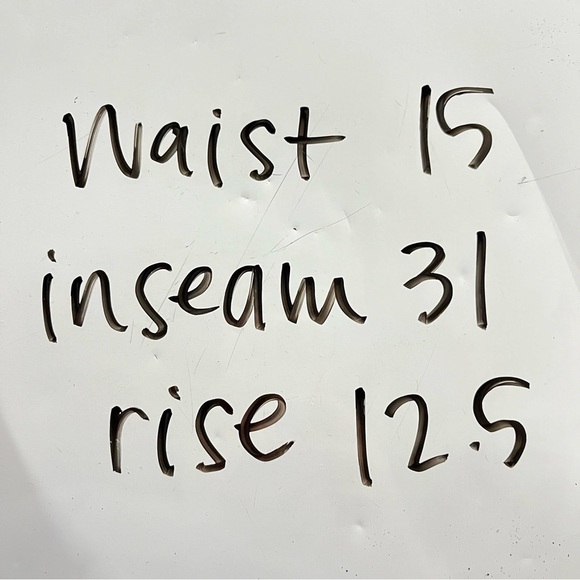 Waist 15
inseam 31
rise 12.5